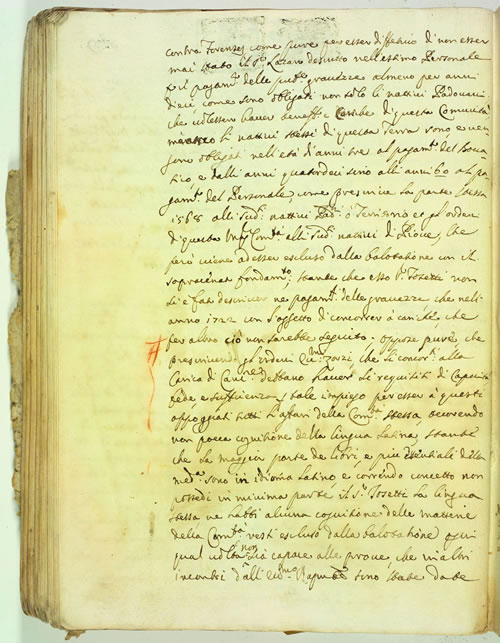 contra forenses come pure per esser diffettivo di non esser
mai stato il S.r Lazaro descritto nell'estimo Personale
pagam.ti delle grauezze almeno per anni
dieci, come sono obligati non solo li nattiui Padouani
che uolessero hauer beneffici e Cariche di questa Comunità
mà anco li nattiui stessi di questa Terra sono e uen
gono obligati nell'età d'anni tre al pagam.to del Boca
tico, e dalli anni quatordeci sino alli anni 60 al pa
gam.to del Personale, come prescriue la parte stessa
1568 alli nattiui ò Territorio et gl'ordeni
di questa Mag.ca Com.tà alli nattiui di Pioue, che
però uiene ad esser escluso dalla balotatione un il
fondam.to, stante che esso S.r Tosetti non
si è fat descriuer ne pagam.ti delle grauezze che nell'
anno 1722 un soggetto di concorrer à cariche che
per altro ciò non sarebbe seguito. Oppure, che
prescriuendo gl'ordeni Zorzi, che li concor.ti alla
Carica di debbano hauer li requisiti di Capacità
fede e sufficienza à tale impiego per esser à questi
appoggiati tutti l'affari della Com.tà stessa, occorendo
non poca cognitione della lingua latina, stante
che la maggior parte de libri, e più essentiali della
med.a sono in idioma latino e, correndo concetto non
possedi in minima parte il S.r Tosetti la lingua
stessa ne habbi alcuna cognitione delle matterie
della Com.tà resti escluso dalla balotatione ogni
qual uolta non sia capace alle proue, che in altri
incontri d'all' sono state date